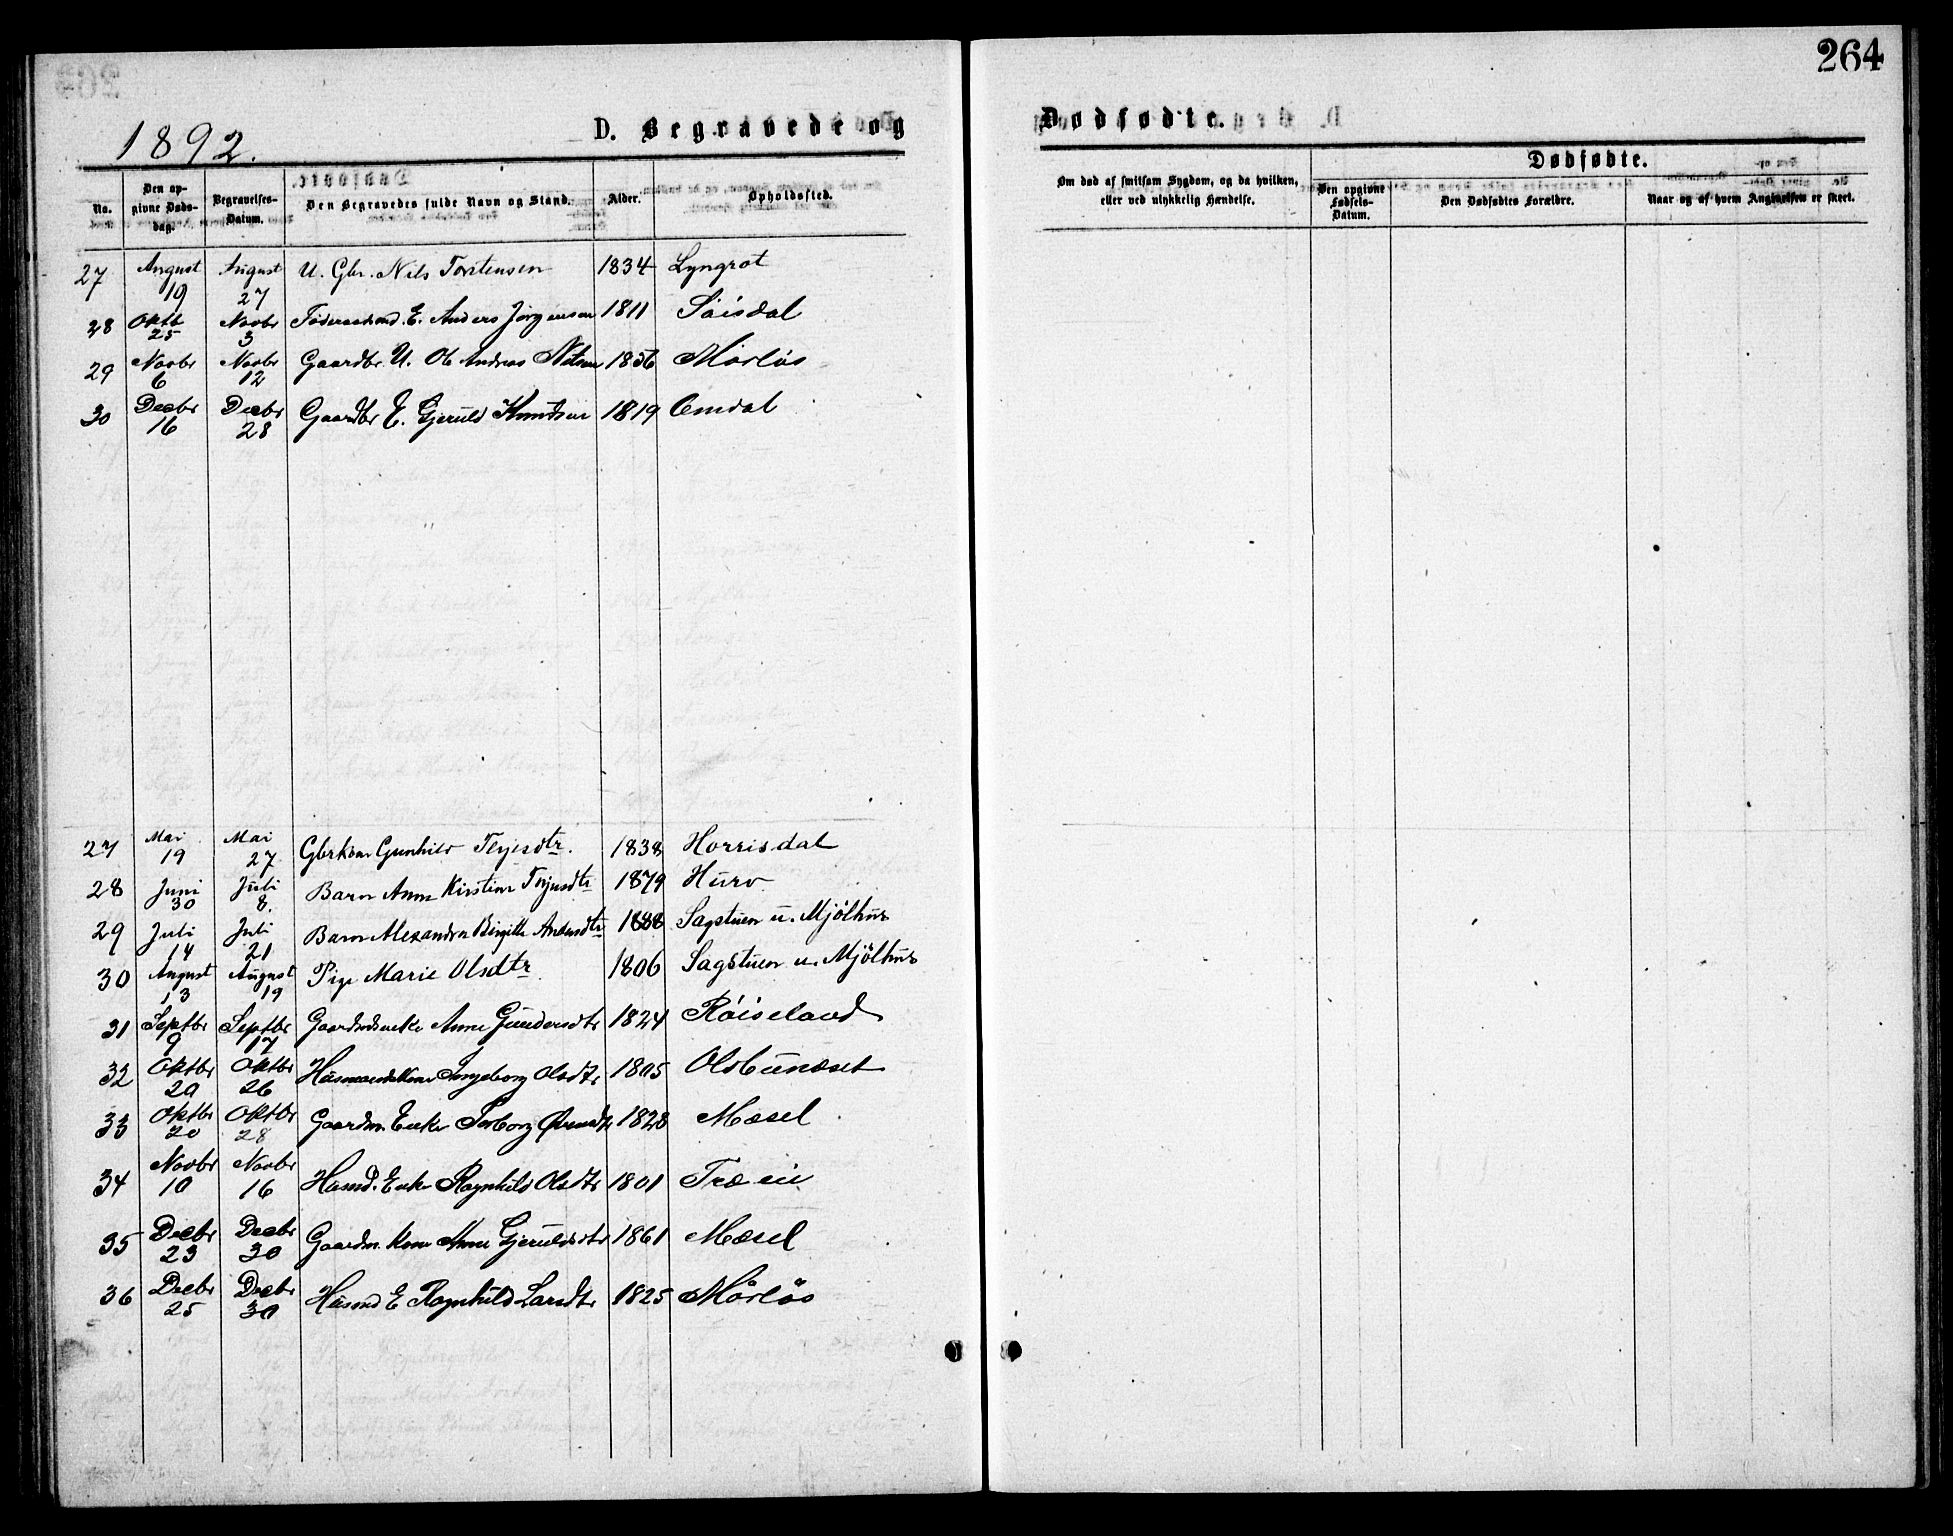 264
1892.
D. Begravede og
Dødfødte.
No.
Den op-
givne Døds-
dag.
Begravelses-
Datum.
Den Begravedes fulde Navn og Stand.
Alder.
Opholdssted.
Om død af smitsom Sygdom, og da hvilken,
eller ved ulykkelig Hændelse.
Dødfødte.
Den opgivne
Fødsels-
Datum.
Den Dødfødtes Forældre.
Naar og af hvem Angivelsen er skeet.
27 August 19 August 27 U. Gbr. Nils Torstensen 1834 Lyngrot
28 Oktb 25 Novbr 3 E. Anders Jørgensen 1811 Söisdal
29 Novbr 6 Novbr 12 Gaardbr. U. Ole Andreas Nilsen 1856 Mörlös
30 Decbr 16 Decbr 28 Gaardbr E. Gjeruld Knudsen 1819 Omdal
27 Mai 19 Mai 27 Gbrkone Gunhild Terjesdtr. 1838 Horrisdal
28 Juni 30 Juli 8. Barn Anne Kirstine Terjesdtr 1879 Hurv
29 Juli 14 Juli 21 Barn Alexandra Birgitte 1888 Sagstuen u. Mjölhus
30 August 13 August 19 Pige Marie Olsdtr 1806 Sagstuen u. Mjölhus
31 Septbr 9 Septbr 17 Anne Gundersdtr 1824 Röiseland
32 Oktbr 20 Oktbr 26 Husmandskone Ingeborg Olsdtr 1805
33 Oktbr 20 Oktbr 28 Gaardm. Enke Torborg 1828 Mæsel
34 Novbr 10 Novbr 16 Husmd. Enke Ragnhild Olsdtr 1801
35 Decbr 23 Decbr 30 Gaardm. Kone Anne Gjeruldsdtr 1861 Mæsel
36 Decbr 25 Decbr 30 Husmd E Ragnhild Larsdtr 1825 Mörlös